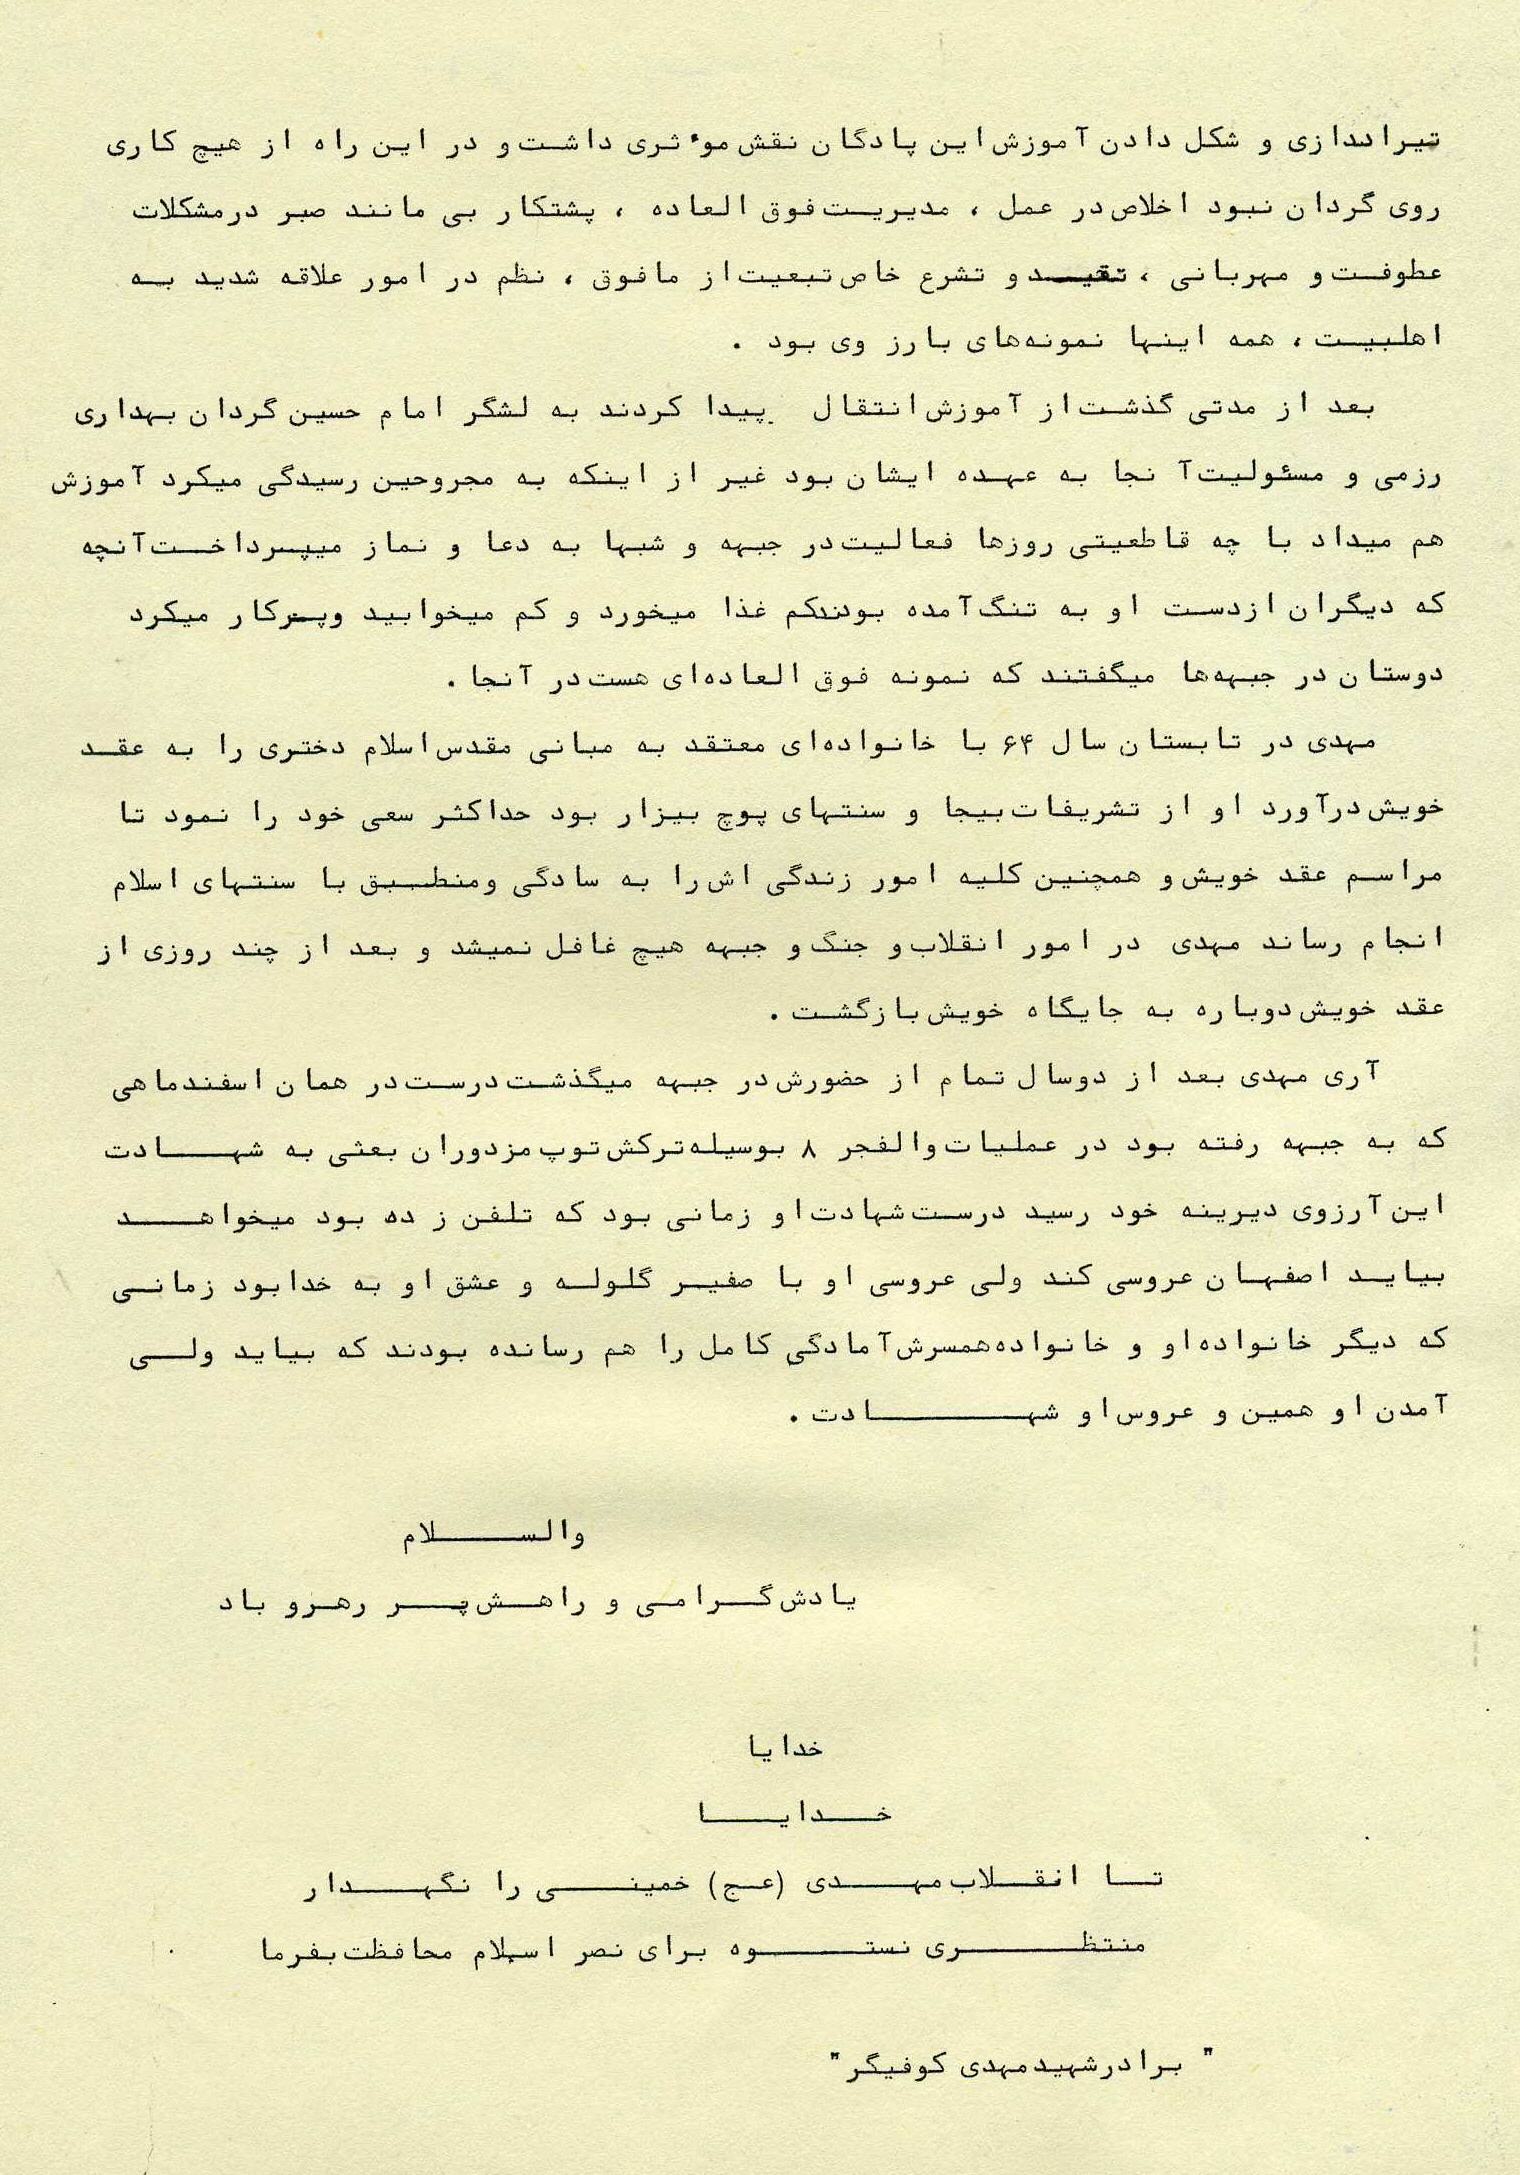 تیراندازی و شکل دادن آموزش این پادگان نقش موٴثری داشت و در این راه از هیچ کاری
روی گردان نبود اخلاص در عمل ، مدیریت فوق العاده ، پشتکار بی مانند صبر درمشکلات
عطوفت و مهربانی ، تقید و تشرع خاص تبعیت از مافوق ، نظم در امور علاقه شدید به
اهلبیت ، همه اینها نمونه‌های بارز وی بود .
بعد از مدتی گذشت از آموزش انتقال پیدا کردند به لشگر امام حسین گردان بهداری
رزمی و مسئولیت آنجا به عهده ایشان بود غیر از اینکه به مجروحین رسیدگی میکرد آموزش
هم میداد با چه قاطعیتی روزها فعالیت در جبهه و شبها به دعا و نماز میپرداخت آنچه
که دیگران ازدست او به تنگ آمده بودندکم غذا میخورد و کم میخوابید وپرکار میکرد
دوستان در جبهه‌ها میگفتند که نمونه فوق العاده‌ای هست در آنجا .
مهدی در تابستان سال ۶۴ با خانواده‌ای معتقد به مبانی مقدس اسلام دختری را به عقد
خویش درآورد او از تشریفات بیجا و سنتهای پوچ بیزار بود حداکثر سعی خود را نمود تا
مراسم عقد خویش و همچنین کلیه امور زندگی اش را به سادگی ومنطبق با سنتهای اسلام
انجام رساند مهدی در امور انقلاب و جنگ و جبهه هیچ غافل نمیشد و بعد از چند روزی از
عقد خویش دوباره به جایگاه خویش بازگشت .
آری مهدی بعد از دوسال تمام از حضورش در جبهه میگذشت درست در همان اسفندماهی
که به جبهه رفته بود در عملیات والفجر ۸ بوسیله ترکش توپ مزدوران بعثی به شهادت
این آرزوی دیرینه خود رسید درست شهادت او زمانی بود که تلفن زده بود میخواهد
بیاید اصفهان عروسی کند ولی عروسی او با صفیر گلوله و عشق او به خدابود زمانی
که دیگر خانواده او و خانواده همسرش آمادگی کامل را هم رسانده بودند که بیاید ولی
آمدن او همین و عروس او شهادت .
والسلام
یادش گرامی و راهش پر رهرو باد
خدایا
خدایا
تا انقلاب مهدی (عج) خمینی را نگهدار
منتظری نستوه برای نصر اسلام محافظت بفرما
" برادرشهیدمهدی کوفیگر"